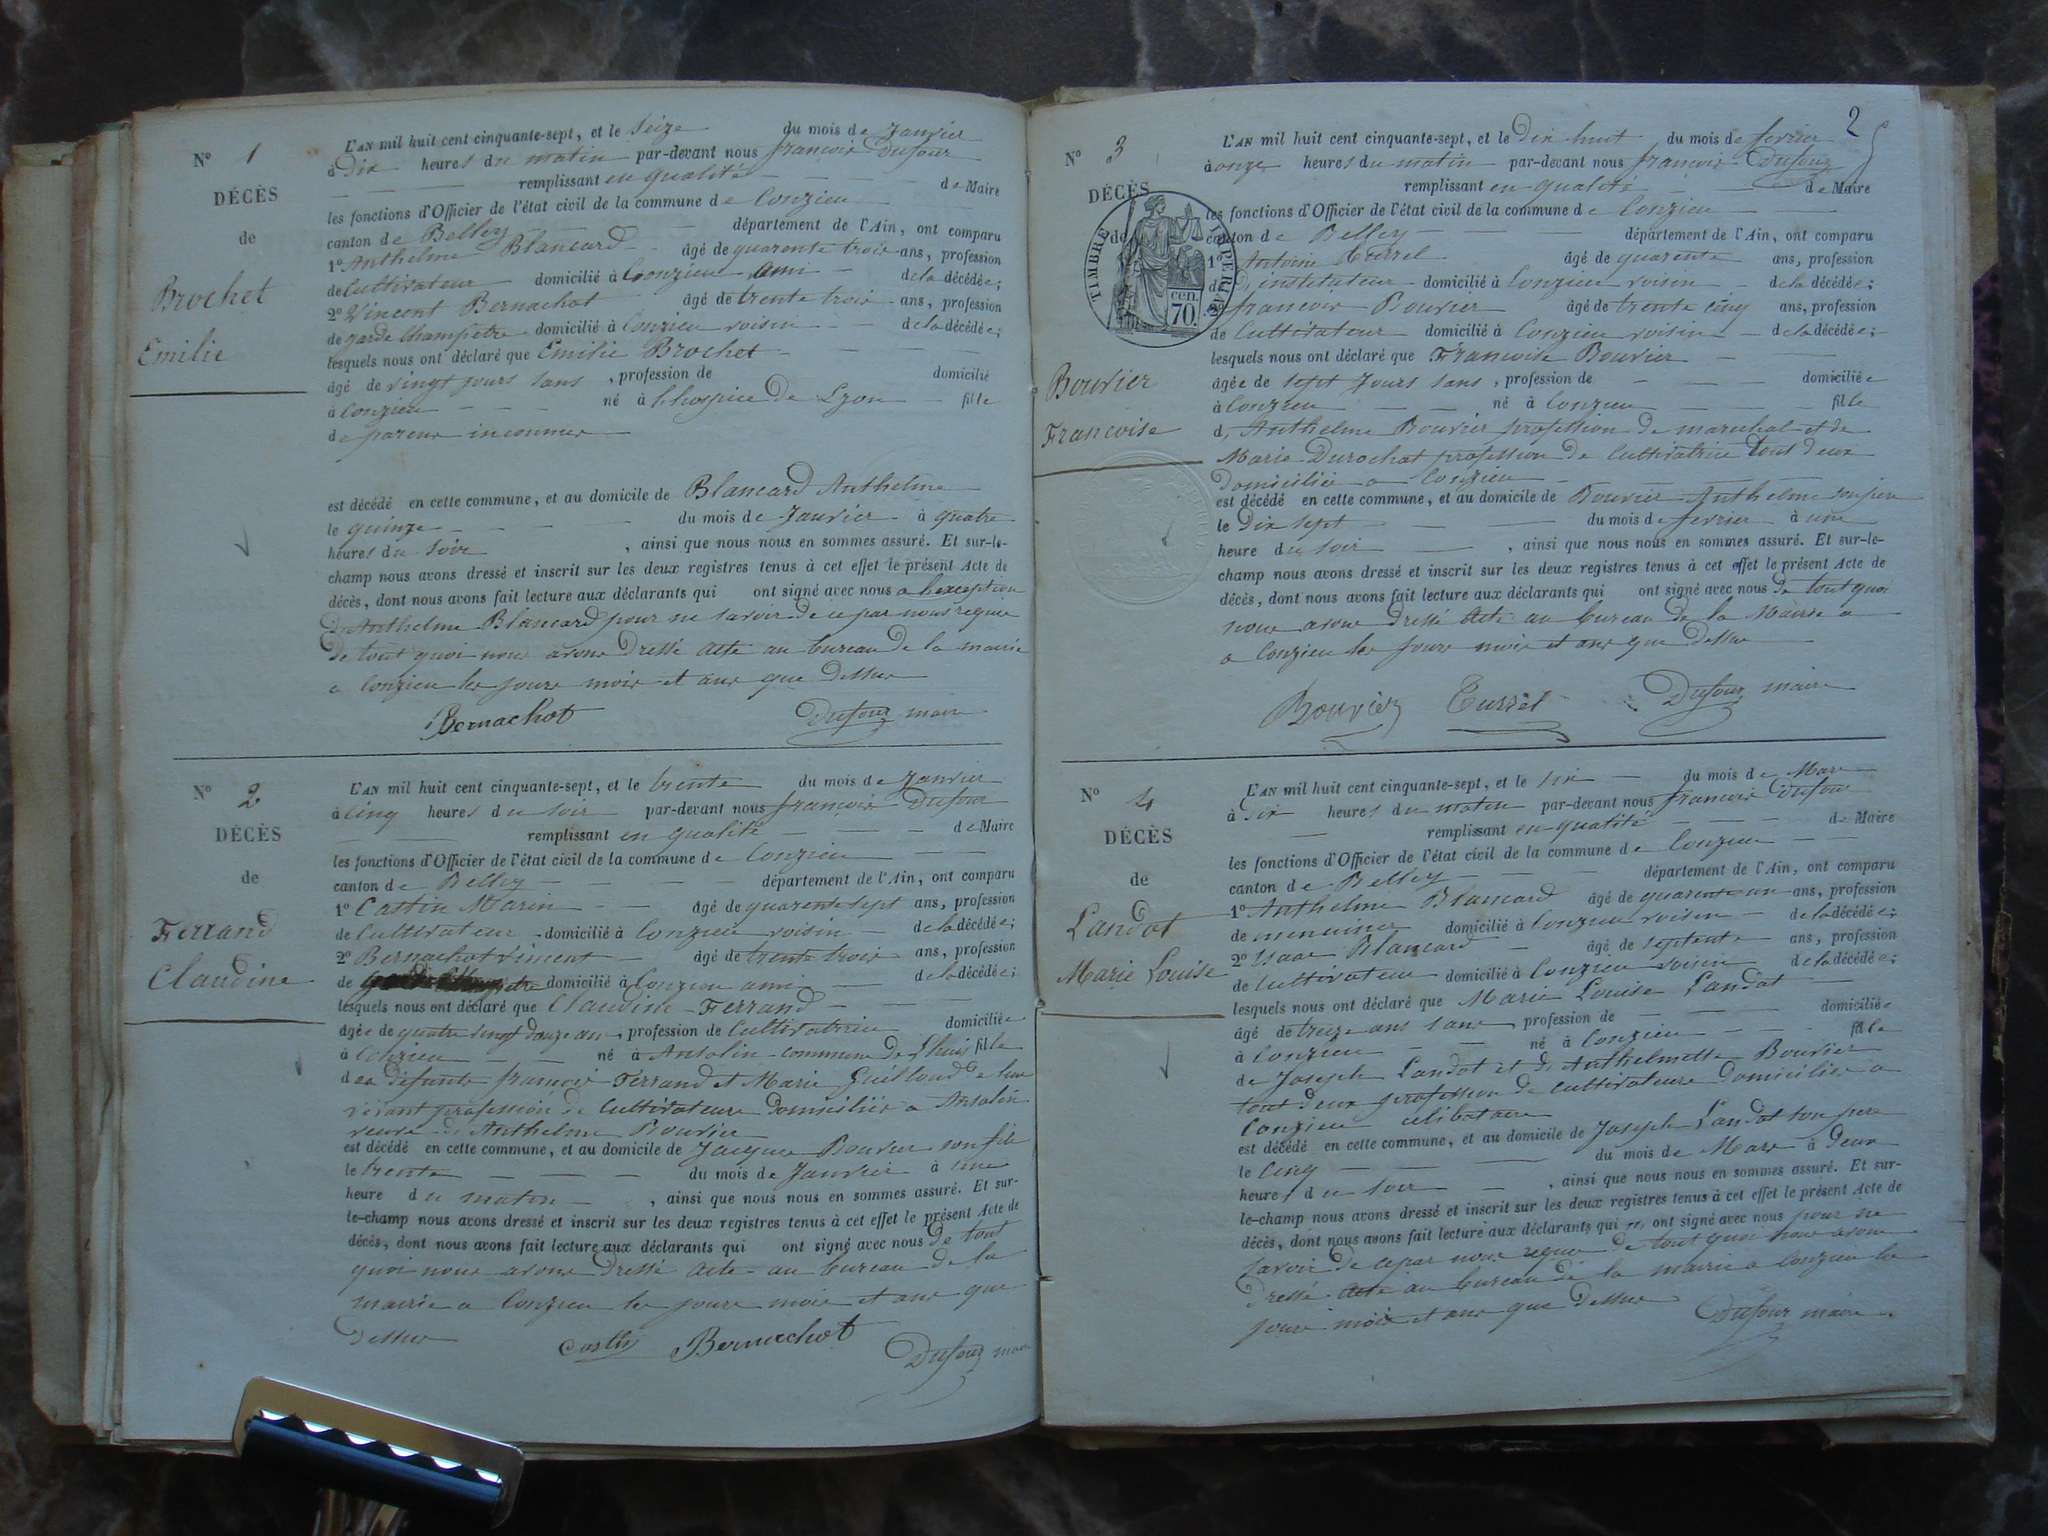 N° 1
DÉCÈS
de
Brochet
Emilie
L'AN mil huit cent cinquante-sept, et le Seize du mois de Janvier
à Dix heures du matin par-devant nous françois Dufour
remplissant en qualité de Maire
les fonctions d'Officier de l'état civil de la commune de Conzieu
canton de Belley département de l'Ain, ont comparu
1° Anthelme Blancard âgé de quarente trois ans, profession
de Cultivateur domicilié à Conzieu ami de la décédée;
2° Vincent Bernachot âgé de trente trois ans, profession
de garde Champetre domicilié à Conzieu voisin de la décédée;
lesquels nous ont déclaré que Emilie Brochet
âgé de vingt jours sans , profession de domicilié
à Conzieu né à lhospice de Lyon fille
de parens inconnus
est décédé en cette commune, et au domicile de Blancard Anthelme
le quinze du mois de Janvier à quatre
heures du soir , ainsi que nous nous en sommes assuré. Et sur-le-
champ nous avons dressé et inscrit sur les deux registres tenus à cet effet le présent Acte de
décès, dont nous avons fait lecture aux déclarants qui ont signé avec nous a lexception
d'Anthelme Blancard pour ne savoir de ce par nous requis
de tout quoi nous avons dressé acte au bureau de la mairie
a Conzieu les jours mois et ans que dessus
Bernachot Dufour maire
N° 2
DÉCÈS
de
Ferrand
Claudine
L'AN mil huit cent cinquante-sept, et le trente du mois de Janvier
à Cinq heures du soir par-devant nous françois Dufour
remplissant en qualité de Maire
les fonctions d'Officier de l'état civil de la commune de Conzieu
canton de Belley département de l'Ain, ont comparu
1° Castin Marin âgé de quarente sept ans, profession
de Cultivateur domicilié à Conzieu voisin de la décédée;
2° Bernachot Vincent âgé de trente trois ans, profession
de domicilié à Conzieu ami de la décédée;
lesquels nous ont déclaré que Claudine Ferrand
âgée de quatre vingt douze ans, profession de Cultivatrice domiciliée
à Conzieu né à Ansolin commune de Lhuis fille
des défunts françois Ferrand et Marie Guilloud de leur
vivant profession de Cultivateurs domiciliés a Ansolin
veuve d'Anthelme Bouvier
est décédé en cette commune, et au domicile de Jacques Bouvier son fils
le trente du mois de Janvier à une
heure du matin , ainsi que nous nous en sommes assuré. Et sur-
le-champ nous avons dressé et inscrit sur les deux registres tenus à cet effet le présent Acte de
décès, dont nous avons fait lecture aux déclarants qui ont signé avec nous de tout
quoi nous avons dressé acte au bureau de la
mairie a Conzieu les jours mois et ans que
dessus
Castin Bernachot Dufour maire
2
N° 3
DÉCÈS
de
TIMBRE IMPERIAL
70 cen.
Bouvier
Francoise
L'AN mil huit cent cinquante-sept, et le Dix huit du mois de fevrier
à onze heures du matin par-devant nous françois Dufour
remplissant en qualité de Maire
les fonctions d'Officier de l'état civil de la commune de Conzieu
canton de Belley département de l'Ain, ont comparu
1° Antoine Tussel âgé de quarente ans, profession
d' instituteur domicilié à Conzieu voisin de la décédée;
2° francois Bouvier âgé de trente cinq ans, profession
de Cultivateur domicilié à Conzieu voisin de la décédée;
lesquels nous ont déclaré que Françoise Bouvier
âgée de sept Jours sans , profession de domiciliée
à Conzieu né à Conzieu fille
d' Anthelme Bouvier profession de marechal et de
Marie Durochat profession de Cultivatrice tout deux
domiciliés a Conzieu
est décédé en cette commune, et au domicile de Bouvier Anthelme son pere
le Dix sept du mois de fevrier à une
heure du soir , ainsi que nous nous en sommes assuré. Et sur-le-
champ nous avons dressé et inscrit sur les deux registres tenus à cet effet le présent Acte de
décès, dont nous avons fait lecture aux déclarants qui ont signé avec nous de tout quoi
nous avons dressé acte au bureau de la Mairie a
a Conzieu les jours mois et ans que dessus
Bouvier Tussel Dufour maire
N° 4
DÉCÈS
de
Landot
Marie Louise
L'AN mil huit cent cinquante-sept, et le six du mois de Mars
à six heures du matin par-devant nous francois Dufour
remplissant en qualité de Maire
les fonctions d'Officier de l'état civil de la commune de Conzieu
canton de Belley département de l'Ain, ont comparu
1° Anthelme Blancard âgé de quarente un ans, profession
de domicilié à Conzieu voisin de la décédée;
2° Isaac Blancard âgé de septente ans, profession
de Cultivateur domicilié à Conzieu voisin de la décédée;
lesquels nous ont déclaré que Marie Louise Landot
âgé de treize ans sans profession de domiciliée
à Conzieu né à Conzieu fille
de Joseph Landot et d' Anthelmette Bouvier
tout deux profession de Cultivateurs domiciliés a
Conzieu celibataire
est décédé en cette commune, et au domicile de Joseph Landot son pere
le Cinq du mois de Mars à deux
heures du soir , ainsi que nous nous en sommes assuré. Et sur-
le-champ nous avons dressé et inscrit sur les deux registres tenus à cet effet le présent Acte de
décès, dont nous avons fait lecture aux déclarants qui n' ont signé avec nous pour ne
savoir de ce par nous requis de tout quoi nous avons
dressé acte au bureau de la mairie a Conzieu les
jours mois et ans que dessus Dufour maire